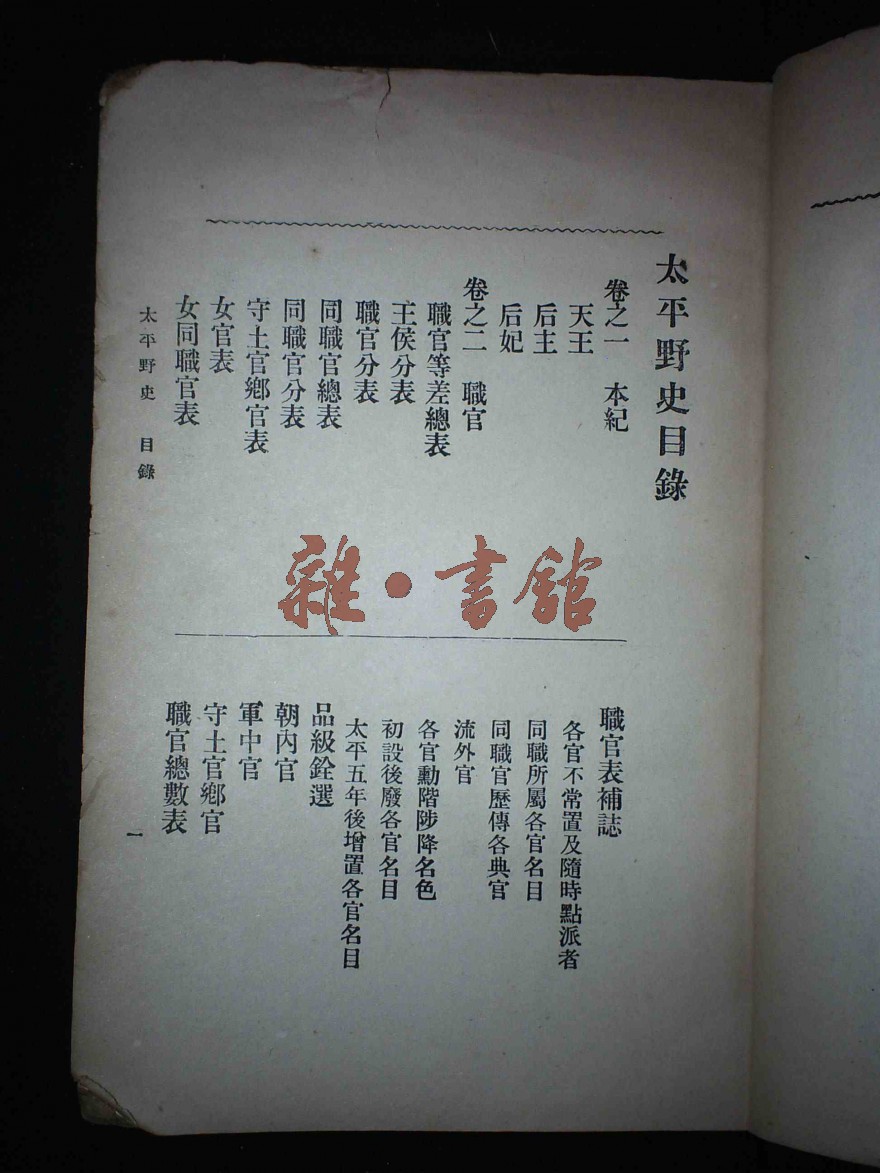 太平野史目錄
卷之一 本紀
天王
后主
后妃
卷之二 職官
職官等差總表
王侯分表
職官分表
同職官總表
同職官分表
守土官鄉官表
女官表
女同職官表
職官表補誌
各官不常置及隨時點派者
同職所屬各官名目
同職官歷傳各典官
流外官
各官勳階陟降名色
初設後廢各官名目
太平五年後增置各官名目
品級銓選
朝內官
軍中官
守土官鄉官
職官總數表
太平野史 目錄
一
雜·書館